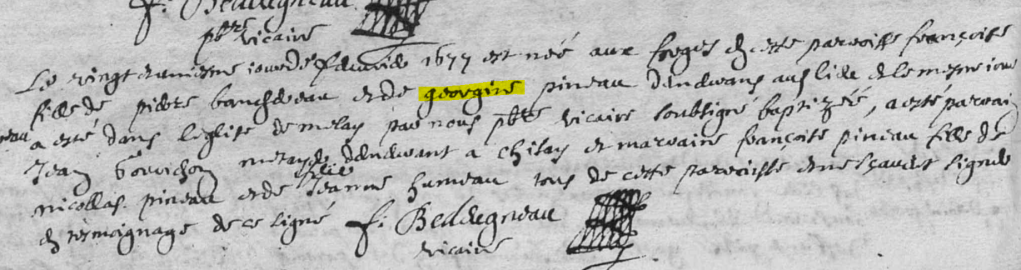 f. Beddugneau
pbre vicaire
Le vingt deuxiesme jour de febvrier 1677 est née aux forges de cette paroisse françoise
fille de pierre et de georgine pineau demeurans au lieu et le mesme jour
a esté dans l'eglise de melay par nous pbre vicaire soubsigné baptizée, a esté parain
Jean metayer demeurant a et maraine françoise pineau fille de
nicollas pineau et de Jeanne humeau tous de cette paroisse et ne sçavent signer
en tesmoignage de ce signé f. Beddugneau
vicaire